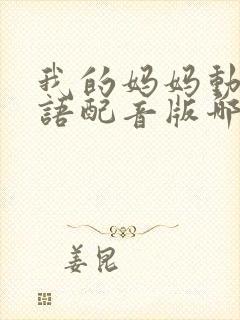 我的妈妈動
語配音版哪
姜昆